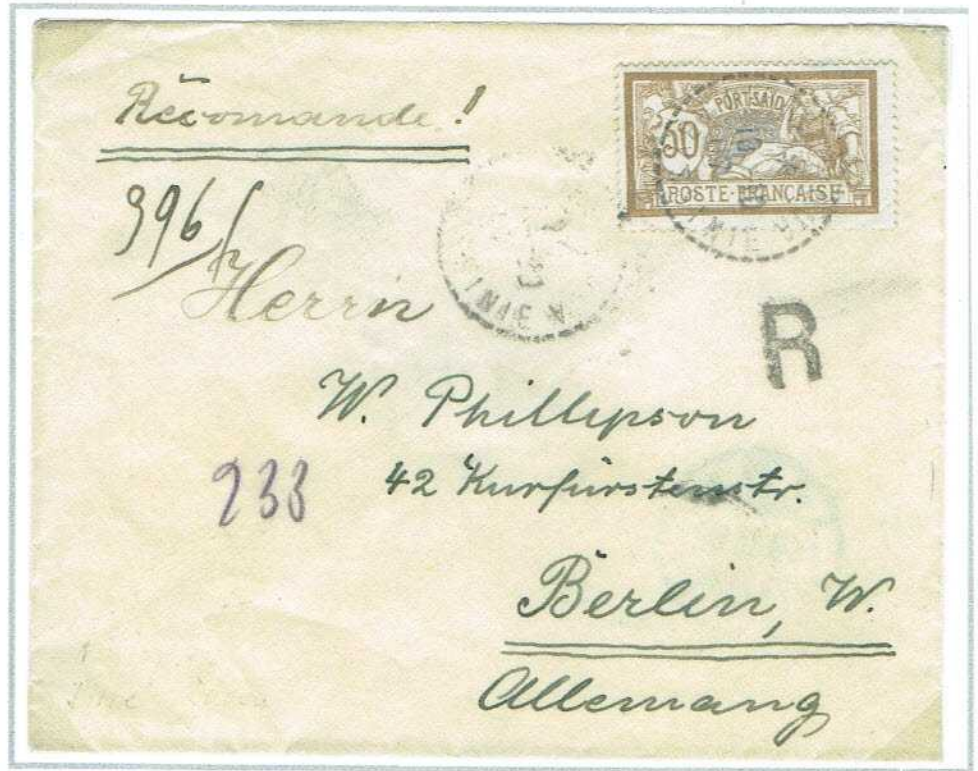 Récomande!
PORT-SAÏD
50
POSTE FRANÇAISE
396/
Herrn
R
W. Phillipson
42 Kurfürstenstr.
233
Berlin, W.
Allemang